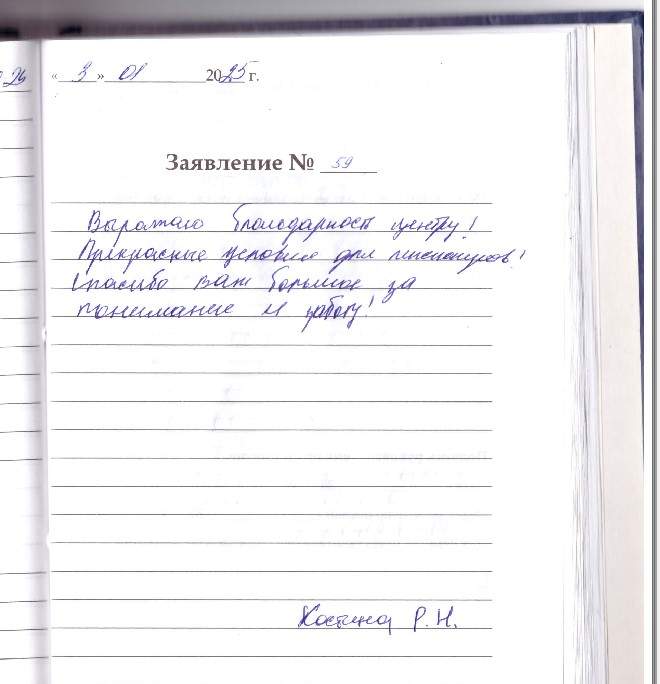 26
« 3 » 01 2025 г.
Заявление № 59
Выражаю благодарность центру!
Прекрасные условия для пенсионеров!
Спасибо Вам большое за
понимание и работу!
Костина Р. Н.